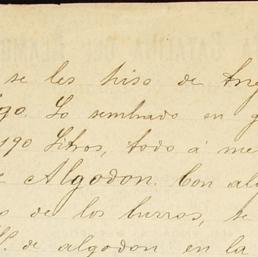 se les hiso de
go. Lo sembrado en g
190 Litros, todo á me
Algodon. Con al
de los burros, se
de algodon en la